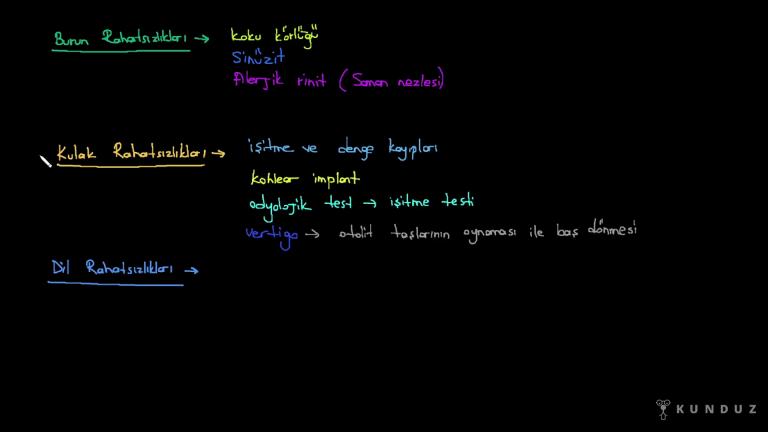 Burun Rahatsızlıkları → koku körlüğü
Sinüzit
Alerjik rinit (Saman nezlesi)
Kulak Rahatsızlıkları → işitme ve denge kayıpları
kohlear implant
odyolojik test → işitme testi
vertigo → otolit taşlarının oynaması ile baş dönmesi
Dil Rahatsızlıkları →
KUNDUZ